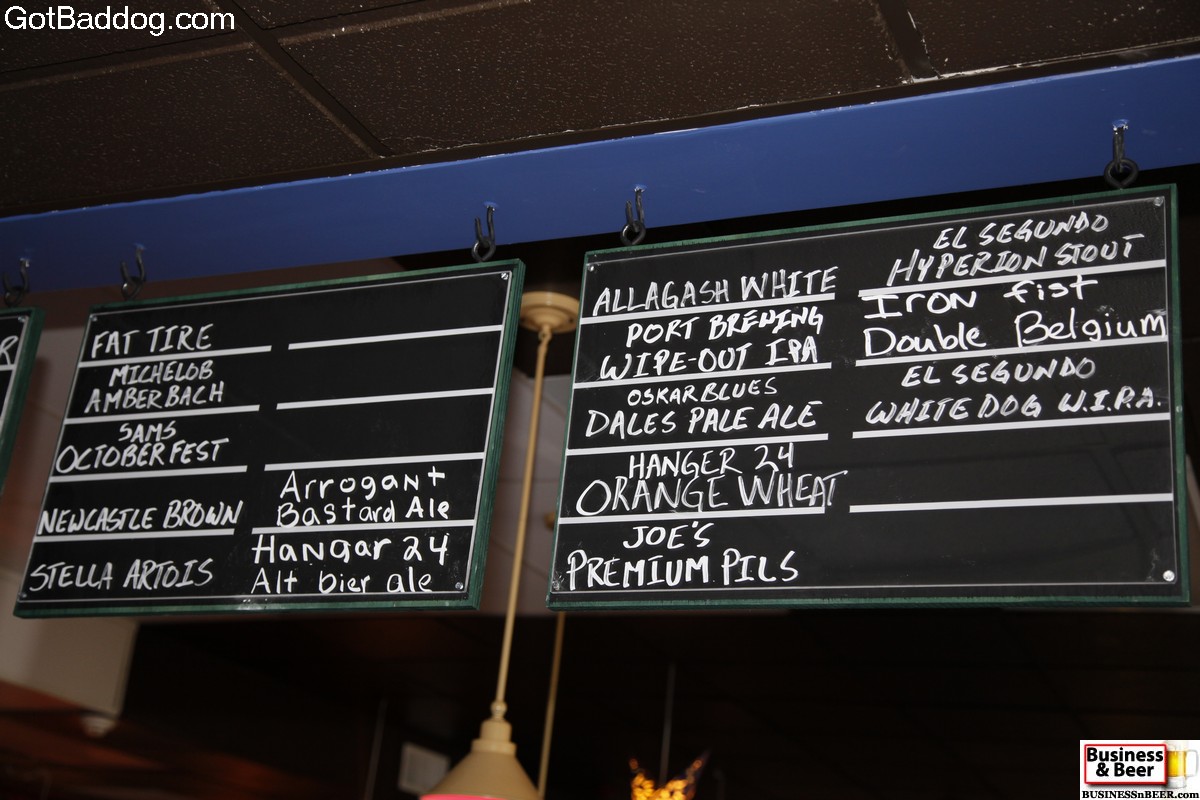 GotBaddog.com
R
FAT TIRE
MICHELOB
AMBERBACH
SAMS
OCTOBERFEST
NEWCASTLE BROWN
STELLA ARTOIS
Arrogant
Bastard Ale
Hangar 24
Alt bier ale
ALLAGASH WHITE
PORT BREWING
WIPE-OUT IPA
OSKAR BLUES
DALES PALE ALE
HANGER 24
ORANGE WHEAT
JOE'S
PREMIUM PILS
EL SEGUNDO
HYPERION STOUT
Iron fist
Double Belgium
EL SEGUNDO
WHITE DOG W.I.P.A.
Business
& Beer
BUSINESSnBEER.com